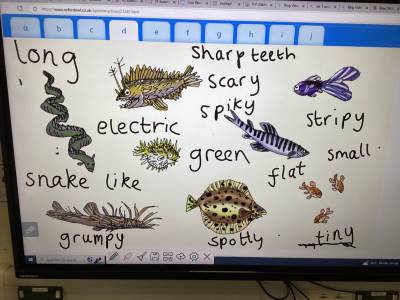 a b c d e f g h
long
Sharp teeth
scary
spiky
electric
stripy
green
small
flat
snake like
grumpy
spotty
tiny